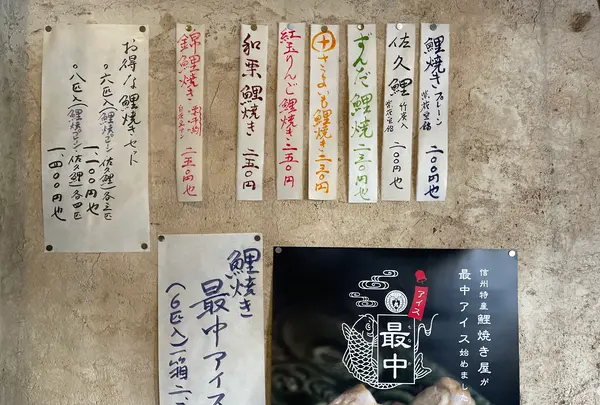 鯉焼き プレーン 二〇〇円也
佐久鯉 竹炭入 二〇〇円也
ずんだ鯉焼 二三〇円也
さつまいも鯉焼き 二三〇円
紅玉りんご鯉焼き 二五〇円
和栗鯉焼き 二五〇円
錦鯉焼き 二五〇円也
お得な鯉焼きセット
○六匹入(鯉焼プレーン・佐久鯉)各三匹
一、一〇〇円也
○八匹入(鯉焼プレーン・佐久鯉)各四匹
一、四〇〇円也
鯉焼き
最中アイス
(6匹入)一箱二、
信州特産 鯉焼き屋が
最中アイス始めまし
アイス
最中